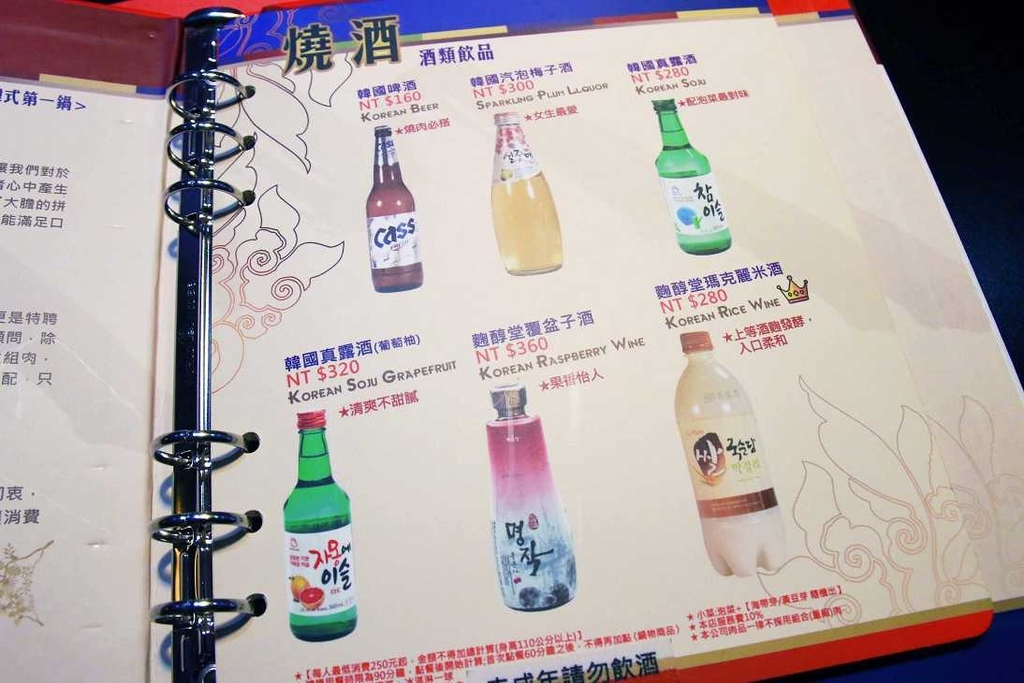 式第一鍋>
讓我們對於
者心中產生
大膽的拼
能滿足口
更是特聘
顧問．除
組肉．
配．只
消費
燒酒
酒類飲品
韓國啤酒
NT $160
KOREAN BEER
★燒肉必搭
Cass
韓國汽泡梅子酒
NT $300
SPARKLING PLUM LLQUOR
★女生最愛
설중매
韓國真露酒
NT $280
KOREAN SOJU
★配泡菜最對味
참
이슬
韓國真露酒(葡萄柚)
NT $320
KOREAN SOJU GRAPEFRUIT
★清爽不甜膩
자몽에
이슬
麴醇堂覆盆子酒
NT $360
KOREAN RASPBERRY WINE
★果香怡人
명작
麴醇堂瑪克麗米酒
NT $280
KOREAN RICE WINE
★上等酒麴發酵，
入口柔和
쌀
국순당
막걸리
★小菜:泡菜+【海帶芽/黃豆芽 隨機出】
★本店服務費10%
★本公司肉品一律不採用組合(重組)肉
★【每人最低消費250元起，金額不得加總計算(身高110公分以上)】
用餐時限為90分鐘，點餐後開始計算;首次點餐60分鐘之後，不得再加點（鍋物商品）
★淇淋一球
未成年請勿飲酒